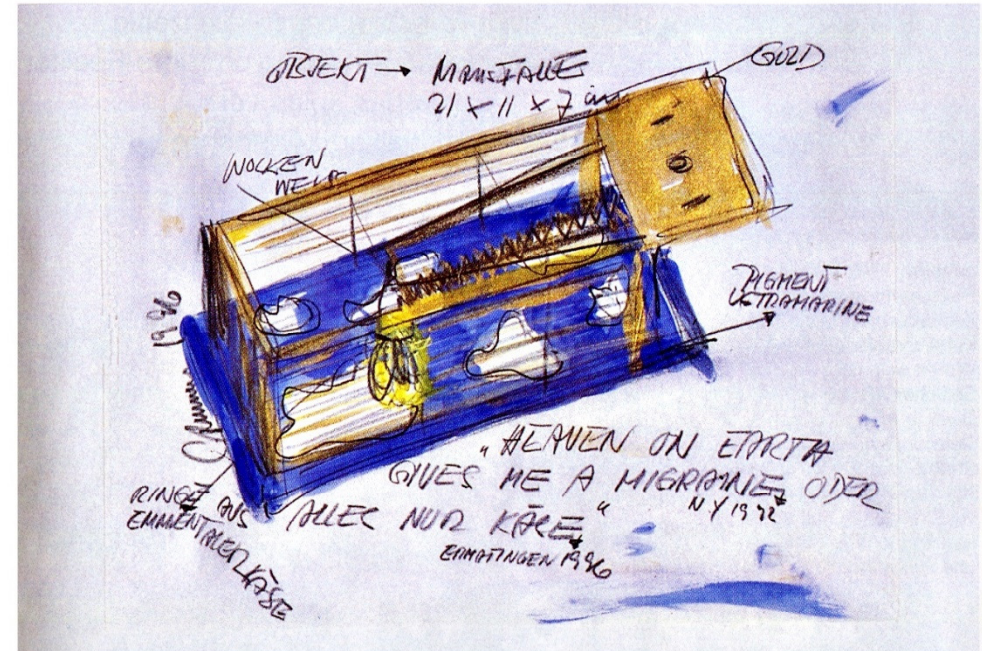 OBJEKT → MAUSFALLE
21 x 11 x 7 cm
GOLD
WOLKEN
WEISS
1996
PIGMENT
ULTRAMARINE
"HEAVEN ON EARTH
GIVES ME A MIGRAINE, ODER
NY 1992
ALLES NUR KÄSE"
ERMATINGEN 1996
RINGE AUS
EMMENTALER KÄSE